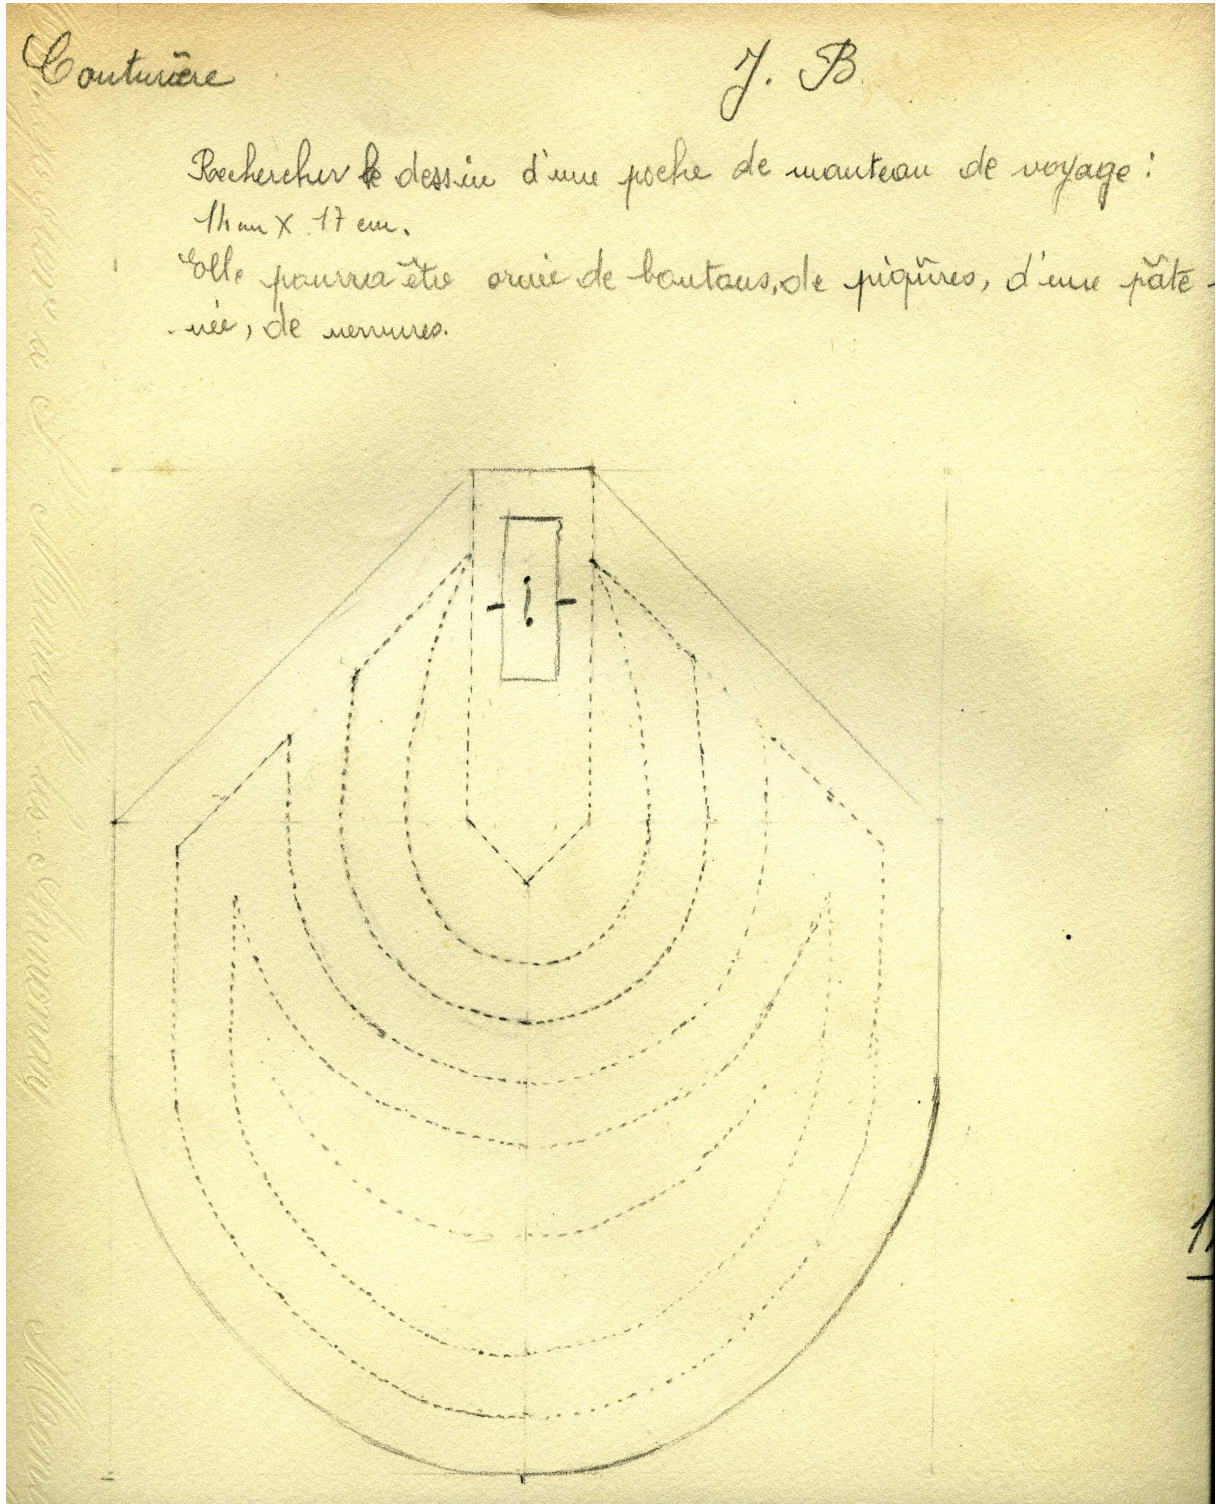 Couturière
J. B.
Rechercher le dessin d'une poche de manteau de voyage :
14 cm X 17 cm.
Elle pourra être ornée de boutons, de piqûres, d'une pâte-
-née, de nervures.